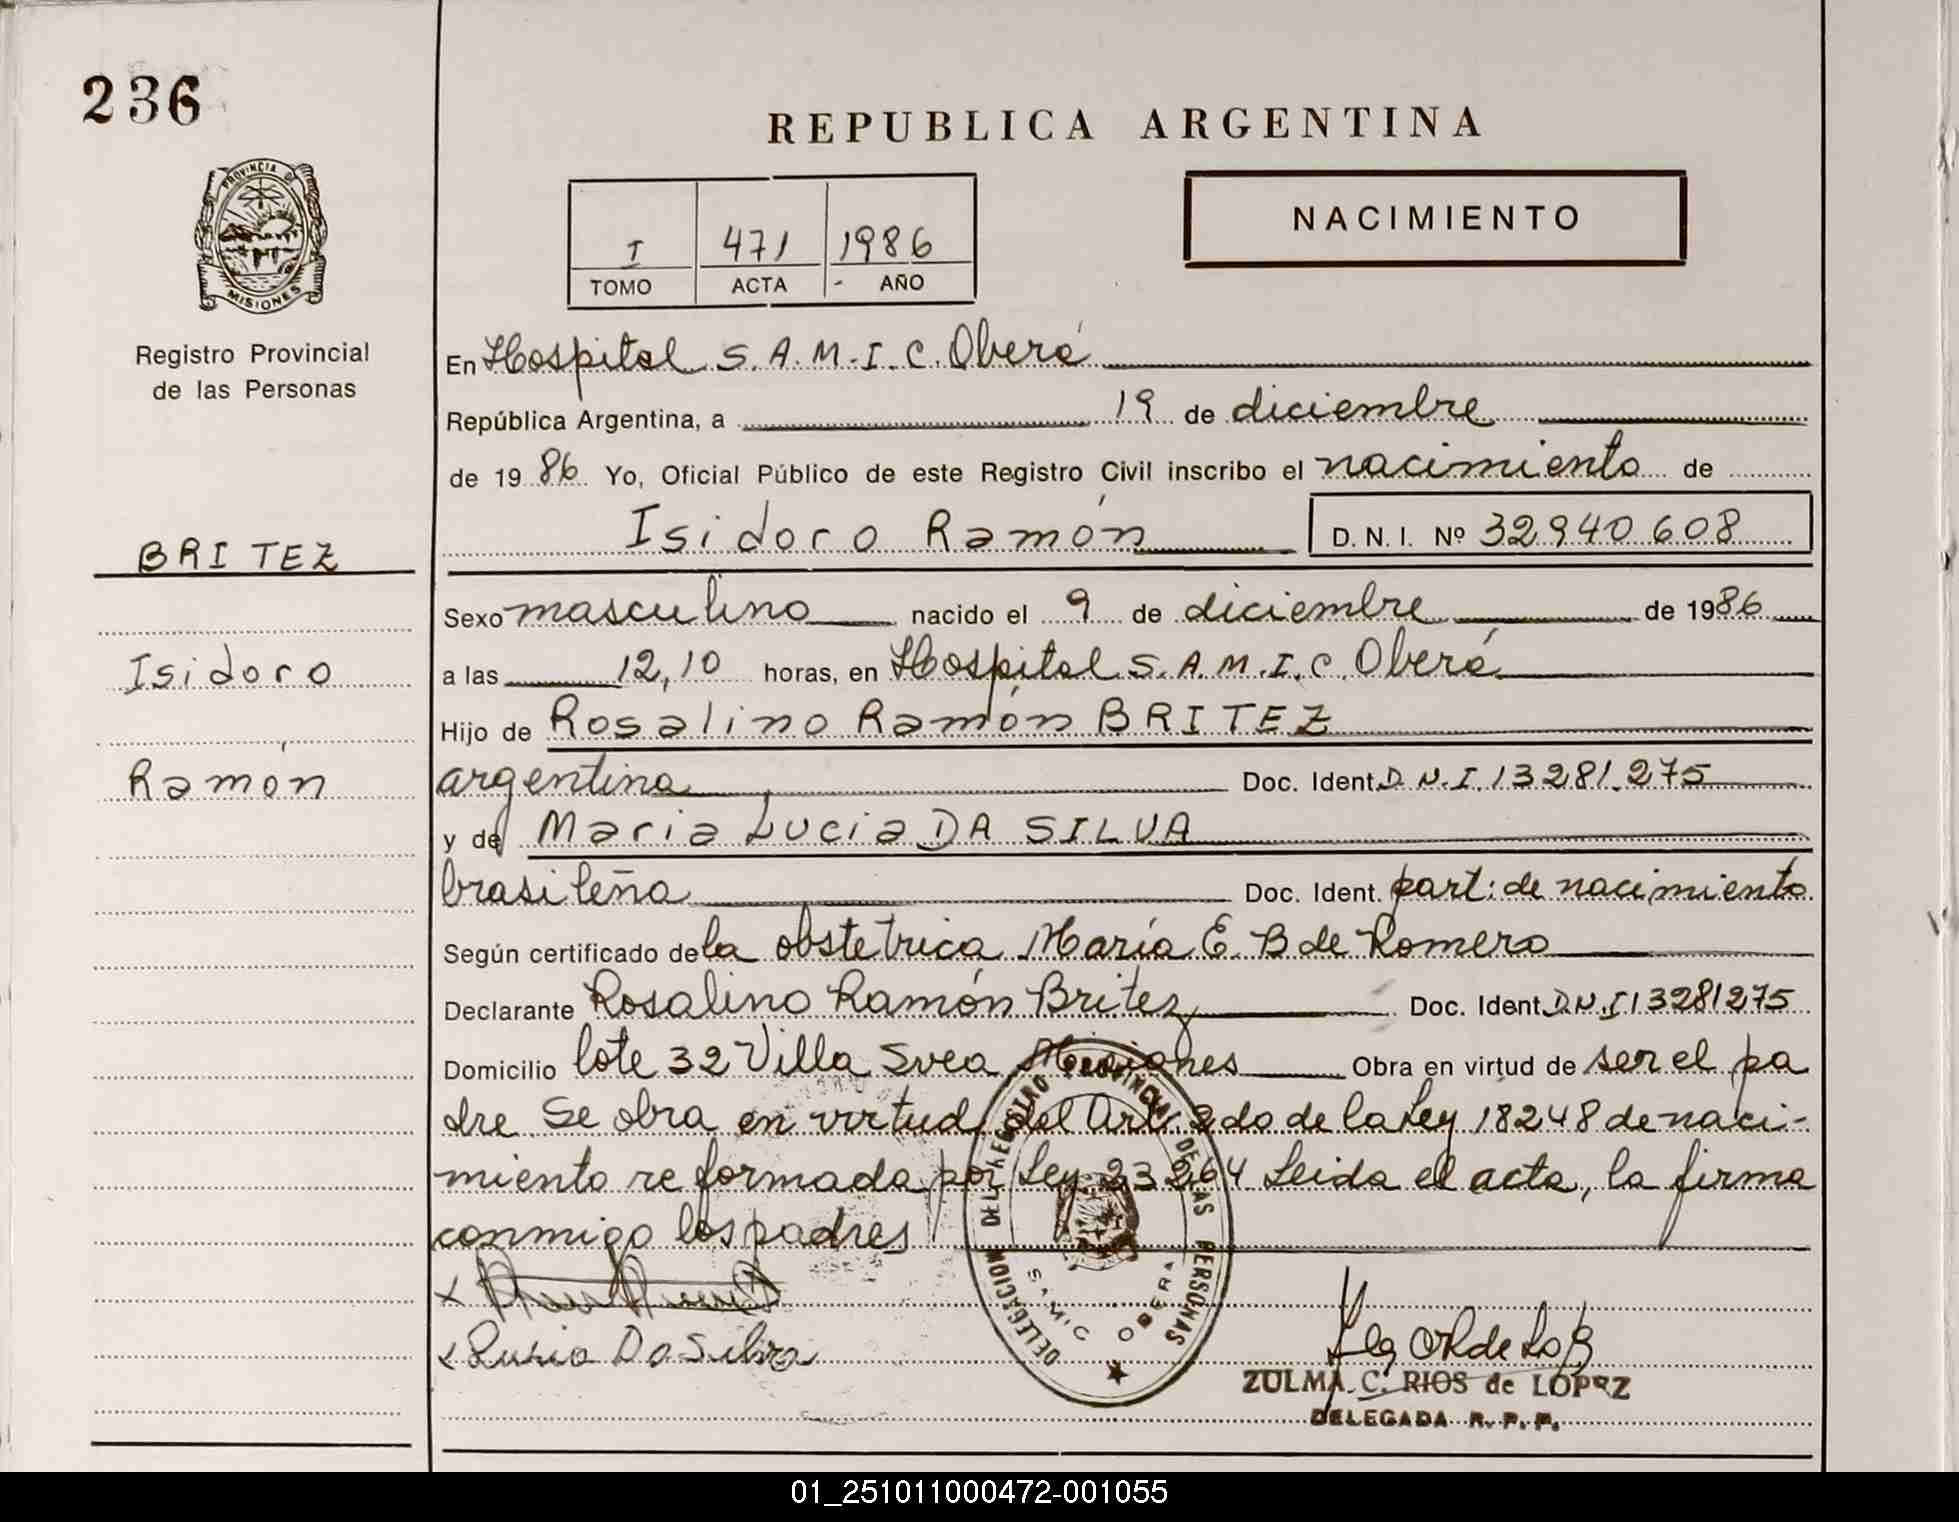 236
REPUBLICA ARGENTINA
PROVINCIA DE
MISIONES
Registro Provincial
de las Personas
I 471 1986
TOMO ACTA - AÑO
NACIMIENTO
En Hospital S.A.M.I.C. Oberá
República Argentina, a 19 de diciembre
de 1986. Yo, Oficial Público de este Registro Civil inscribo el nacimiento de
Isidoro Ramón D.N.I. Nº 32940608
BRITEZ
Isidoro
Ramón
Sexo masculino nacido el 9 de diciembre de 1986
a las 12,10 horas, en Hospital S.A.M.I.C. Oberá
Hijo de Rosalino Ramón BRITEZ
argentina Doc. Ident. D.N.I. 13281.275
y de Maria Lucia DA SILVA
brasileña Doc. Ident. part: de nacimiento
Según certificado de la obstetrica María E. B de Romero
Declarante Rosalino Ramón Britez Doc. Ident. D.N.I 13281275
Domicilio lote 32 Villa Svea Misiones Obra en virtud de ser el pa
dre Se obra en virtud del Art. 2do de la Ley 18248 de naci-
miento reformada por Ley 23264 Leida el acta, la firma
conmigo los padres
x
x Lusia Da Silva
DELEGACION DEL REGISTRO PROVINCIAL DE LAS PERSONAS
SAMIC OBERA
ZULMA C. RIOS de LOPEZ
DELEGADA R. P. P.
01_251011000472-001055